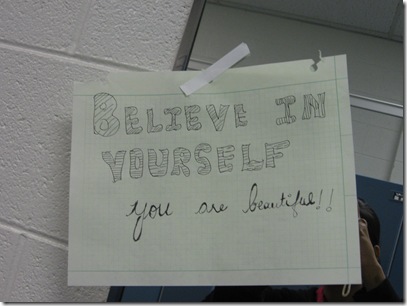 BELIEVE IN
YOURSELF
you are beautiful!!